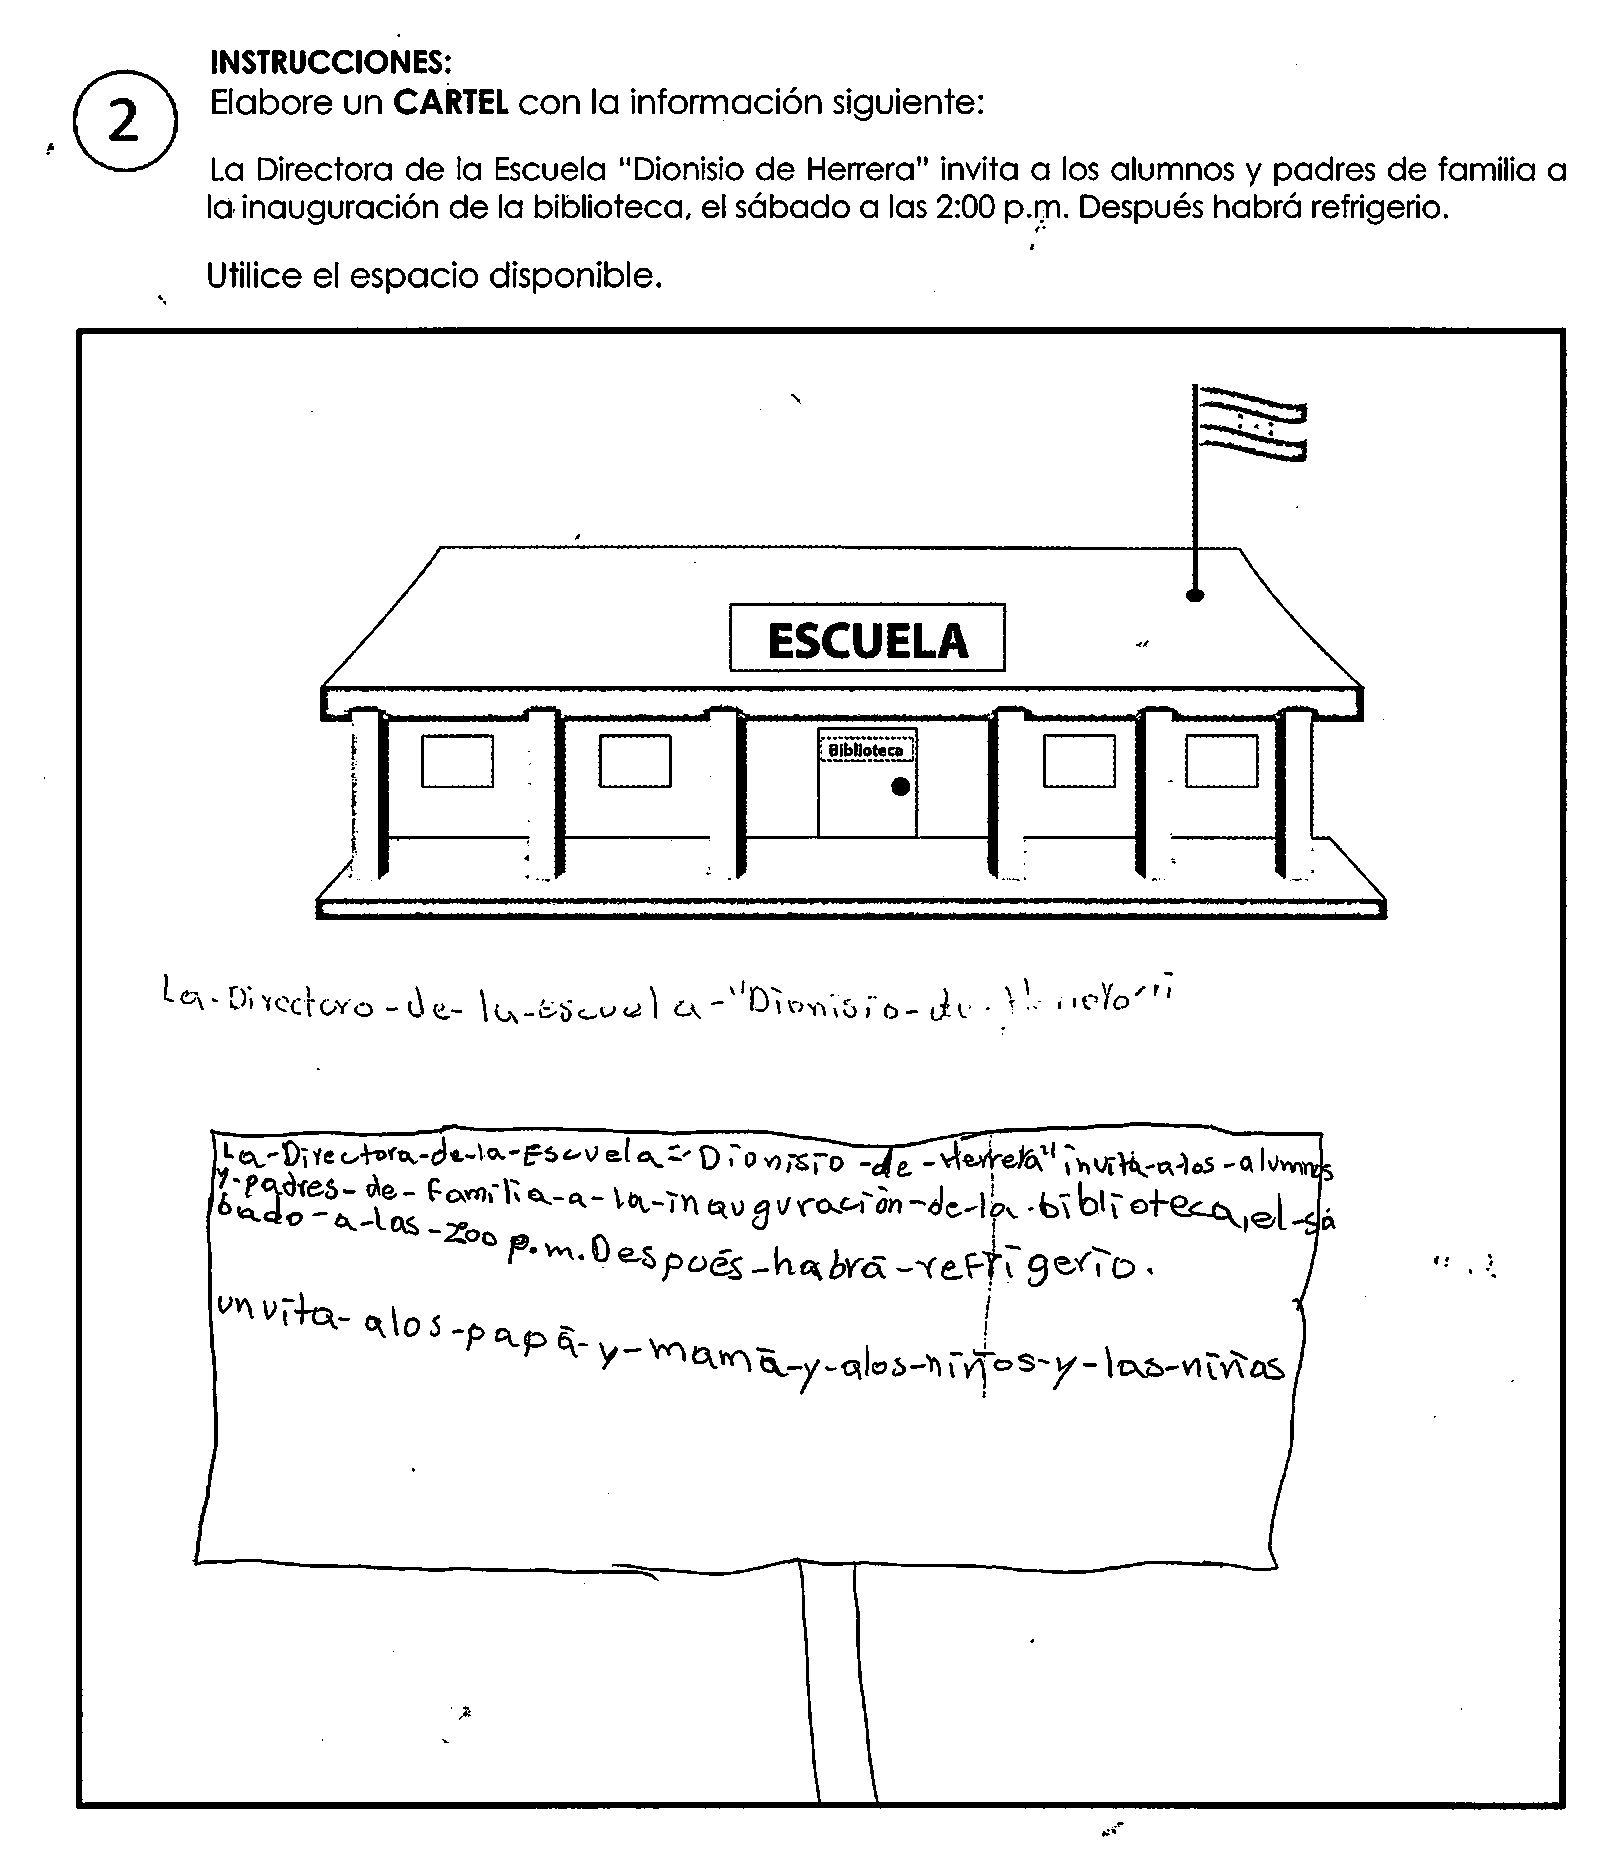 INSTRUCCIONES:
2
Elabore un CARTEL con la información siguiente:
La Directora de la Escuela "Dionisio de Herrera" invita a los alumnos y padres de familia a
la inauguración de la biblioteca, el sábado a las 2:00 p.m. Después habrá refrigerio.
Utilice el espacio disponible.
ESCUELA
Biblioteca
La-Directoro-de-la-Escuela-"Dionisio-de-
La-Directora-de-la-Escuela="Dionisio-de-Herrera" invita-a-los-alumnos
y-padres-de-familia-a-la-inauguración-de-la-biblioteca,el-sá
bado-a-las-200 p.m.Después-habrá-refrigerio.
unvita-alos-papá-y-mamá-y-alos-niños-y-las-niñas